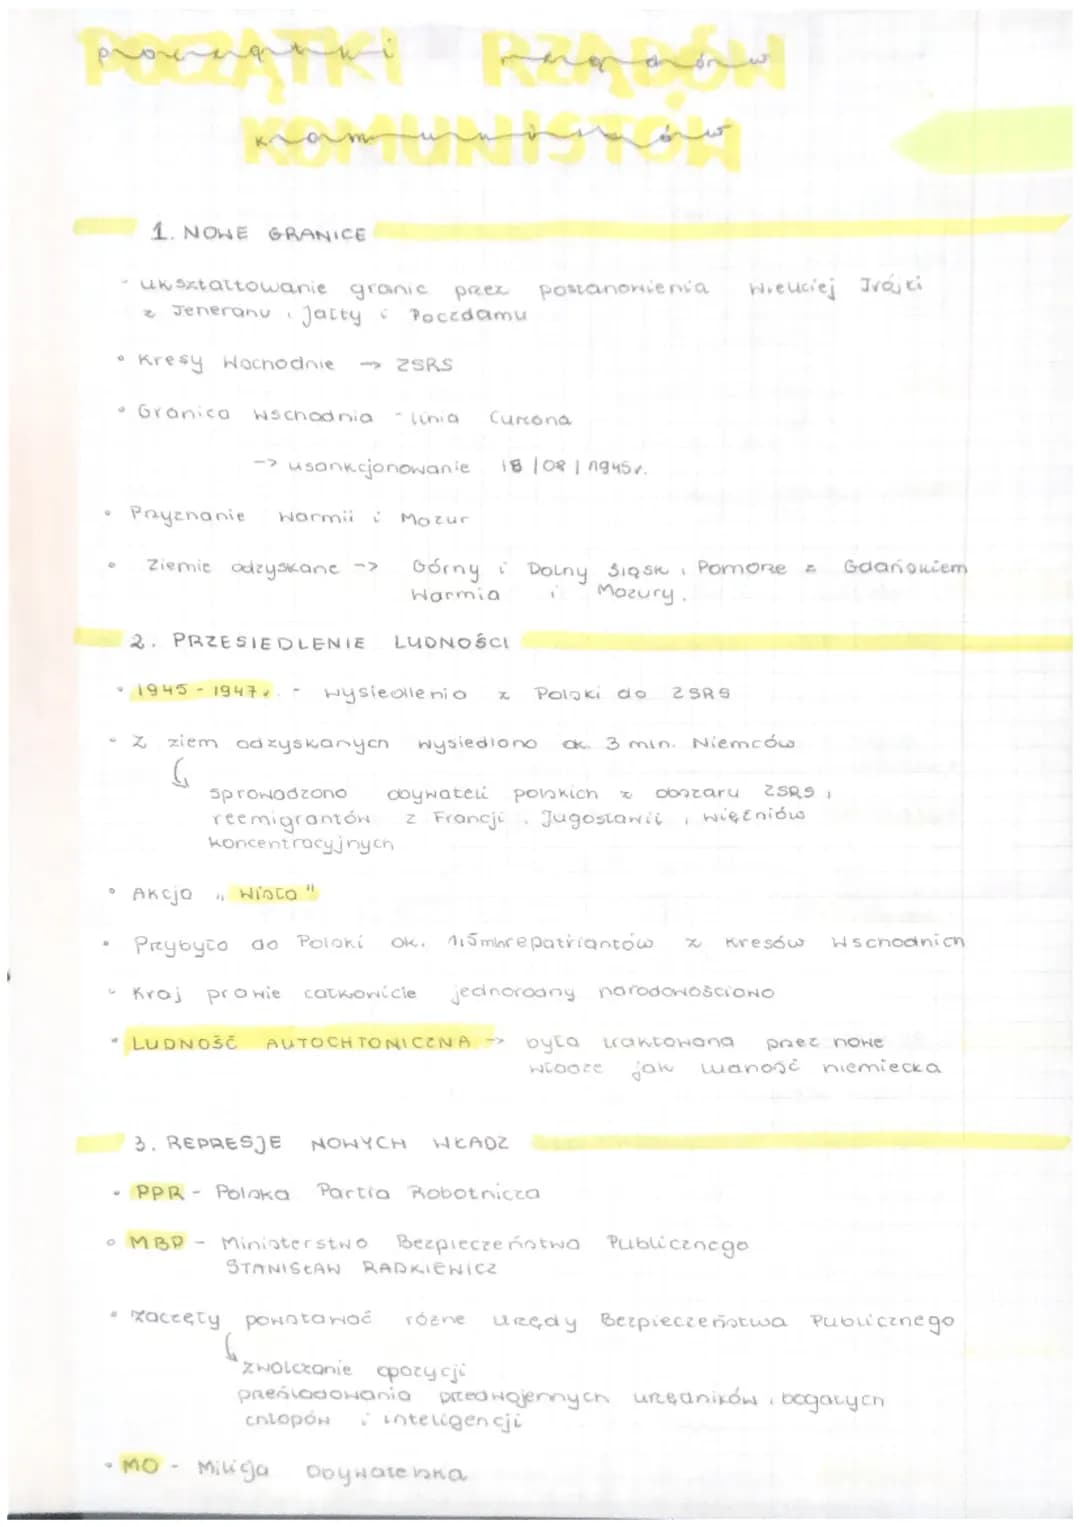 POCZĄTKI RZĄDÓW
początki rządów
KOMUNISTÓW
komunistów
1. NOWE GRANICE
- ukształtowanie granic przez postanowienia Wielkiej Trójki
z Teheranu, Jałty i Poczdamu
• Kresy Wschodnie → ZSRS
• Granica wschodnia - linia Curzona
-> usankcjonowanie 18/08/1945r.
• Przyznanie Warmii i Mazur
• Ziemie odzyskane -> Górny i Dolny Śląsk, Pomorze z Gdańskiem
Warmia i Mazury.
2. PRZESIEDLENIE LUDNOŚCI
• 1945-1947r. - wysiedlenia z Polski do ZSRS
• Z ziem odzyskanych wysiedlono ok. 3 mln. Niemców
sprowadzono obywateli polskich z obszaru ZSRS,
reemigrantów z Francji, Jugosławii, więźniów
koncentracyjnych
• Akcja „Wisła"
• Przybyło do Polski ok. 1,5mln repatriantów z Kresów Wschodnich
• Kraj prawie całkowicie jednorodny narodowościowo
• LUDNOŚĆ AUTOCHTONICZNA -> była traktowana przez nowe
władze jak ludność niemiecka
3. REPRESJE NOWYCH WŁADZ
• PPR - Polska Partia Robotnicza
• MBP - Ministerstwo Bezpieczeństwa Publicznego
STANISŁAW RADKIEWICZ
• Zaczęły powstawać różne Urzędy Bezpieczeństwa Publicznego
zwalczanie opozycji
prześladowania przedwojennych urzędników, bogatych
chłopów i inteligencji
• MO - Milicja Obywatelska